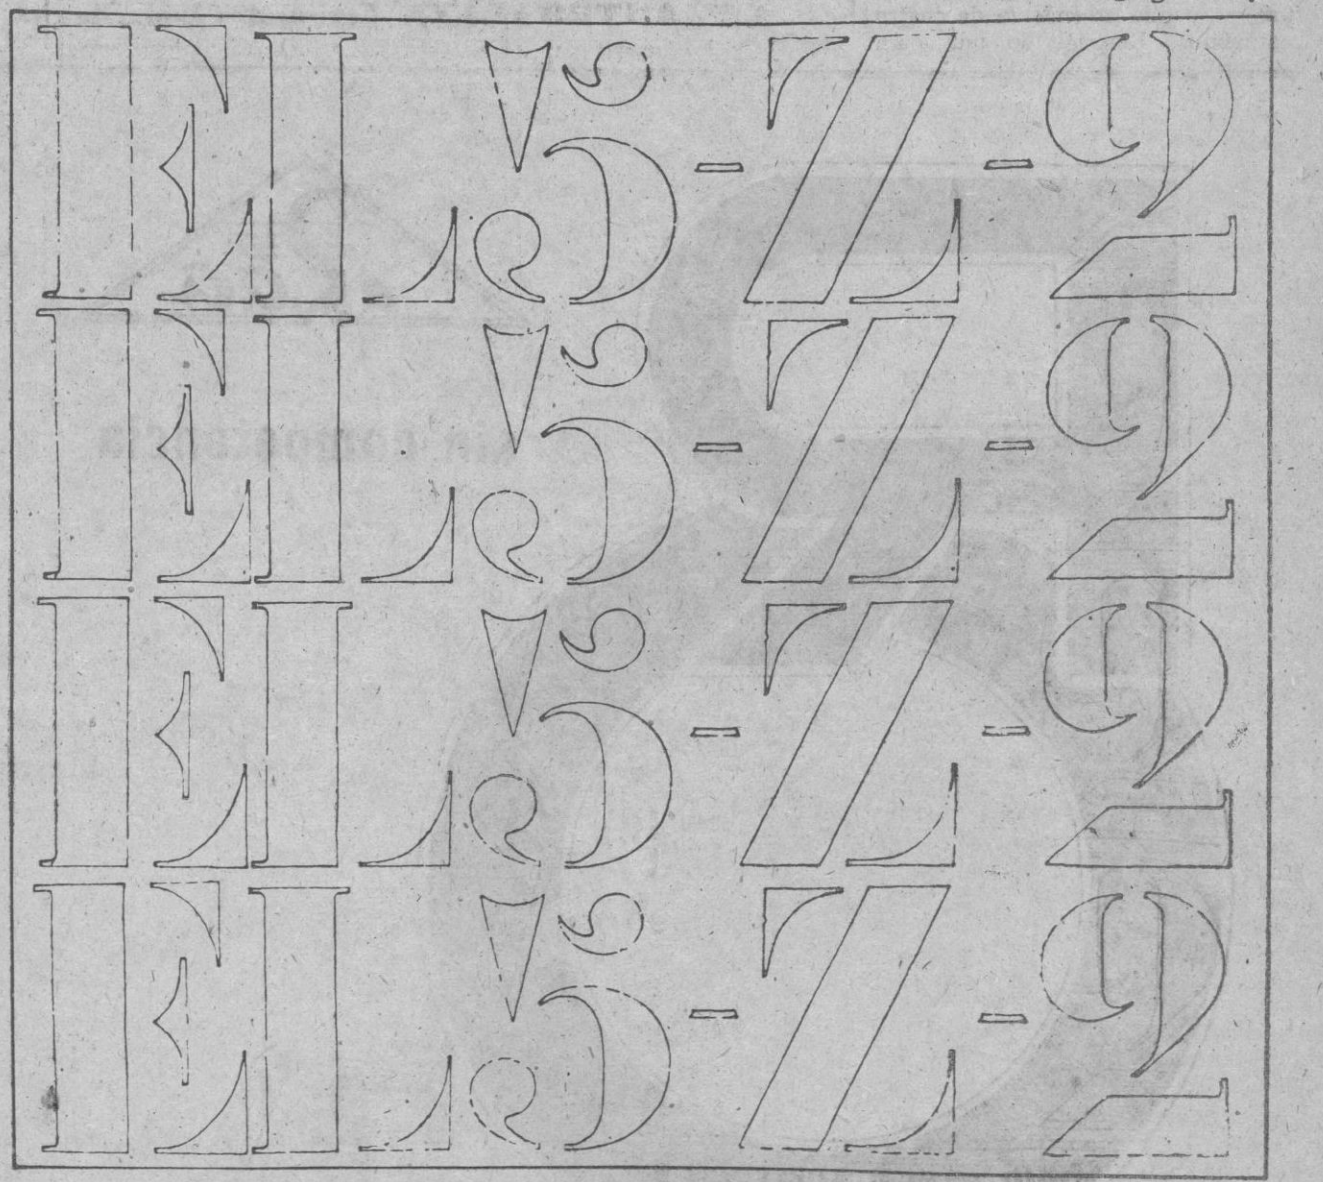 EL 5-Z-2
EL 5-Z-2
EL 5-Z-2
EL 5-Z-2